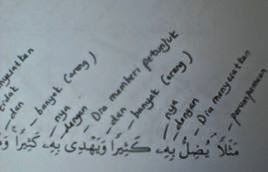 nyesatkan
tidak
dan
banyak (orang)
nya
dengan
Dia memberi petunjuk
dan
banyak (orang)
nya
dengan
Dia menyesatkan
perumpamaan
مَثَلاً يُضِلُّ بِهِ كَثِيرًا وَيَهْدِى بِهِ كَثِيرًا وَ